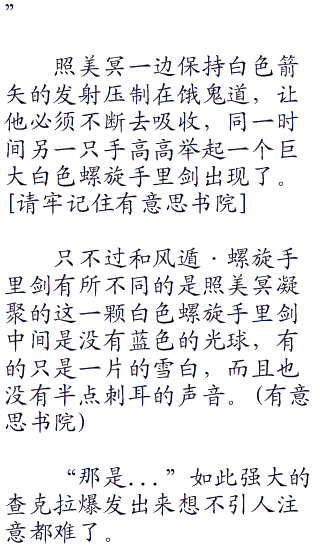 ”
照美冥一边保持白色箭
矢的发射压制在饿鬼道，让
他必须不断去吸收，同一时
间另一只手高高举起一个巨
大白色螺旋手里剑出现了。
[请牢记住有意思书院]
只不过和风遁·螺旋手
里剑有所不同的是照美冥凝
聚的这一颗白色螺旋手里剑
中间是没有蓝色的光球，有
的只是一片的雪白，而且也
没有半点刺耳的声音。(有意
思书院)
“那是...”如此强大的
查克拉爆发出来想不引人注
意都难了。